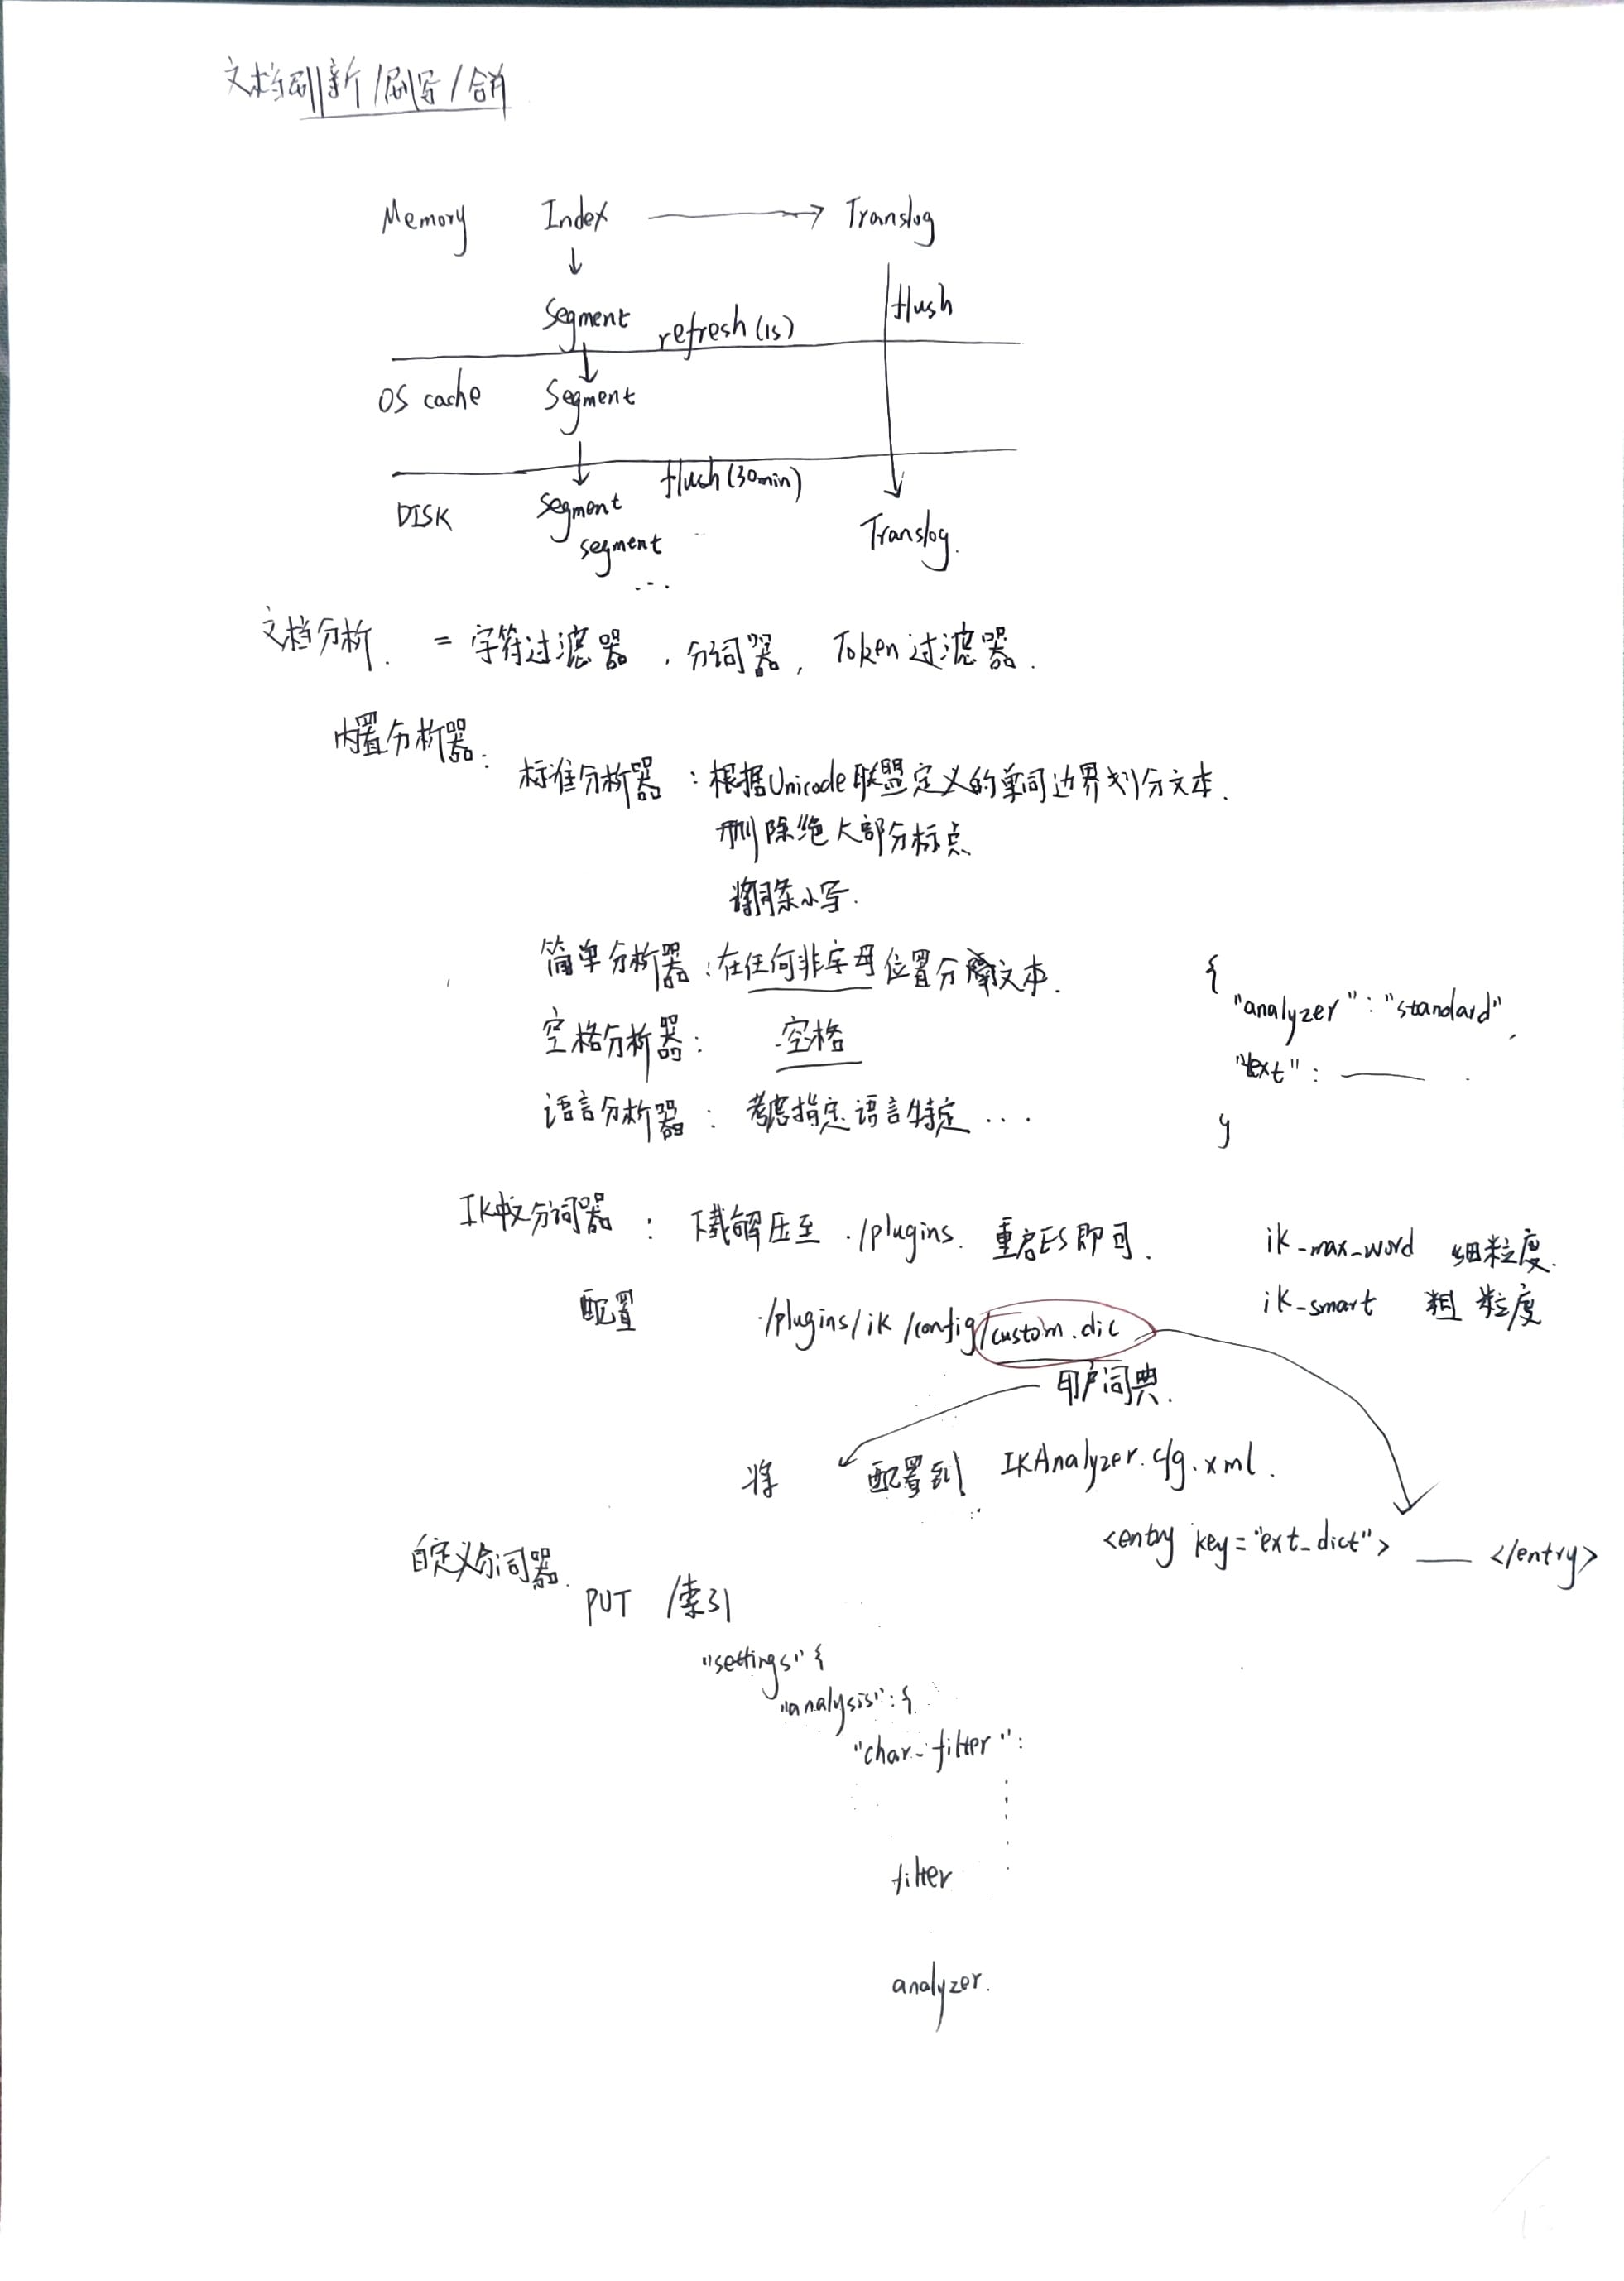 文档刷新/刷写/合并
Memory Index Translog
Segment refresh(1s) flush
OS cache Segment
flush(30min)
DISK Segment Translog.
segment
...
文档分析. = 字符过滤器, 分词器, Token过滤器.
内置分析器:
标准分析器: 根据Unicode联盟定义的单词边界划分文本.
删除绝大部分标点
将词条小写.
简单分析器: 在任何非字母位置分隔文本.
空格分析器: 空格
语言分析器: 考虑指定语言特定...
{
"analyzer":"standard",
"text": ——
}
IK中文分词器: 下载解压至 ./plugins. 重启ES即可.
ik-max-word 细粒度.
ik-smart 粗粒度
配置 ./plugins/ik/config/custom.dic
用户词典.
将 配置到 IKAnalyzer.cfg.xml.
<entry key="ext_dict"> —— </entry>
自定义分词器.
PUT /索引
"settings"{
"analysis":{
"char-filter":
filter
analyzer.